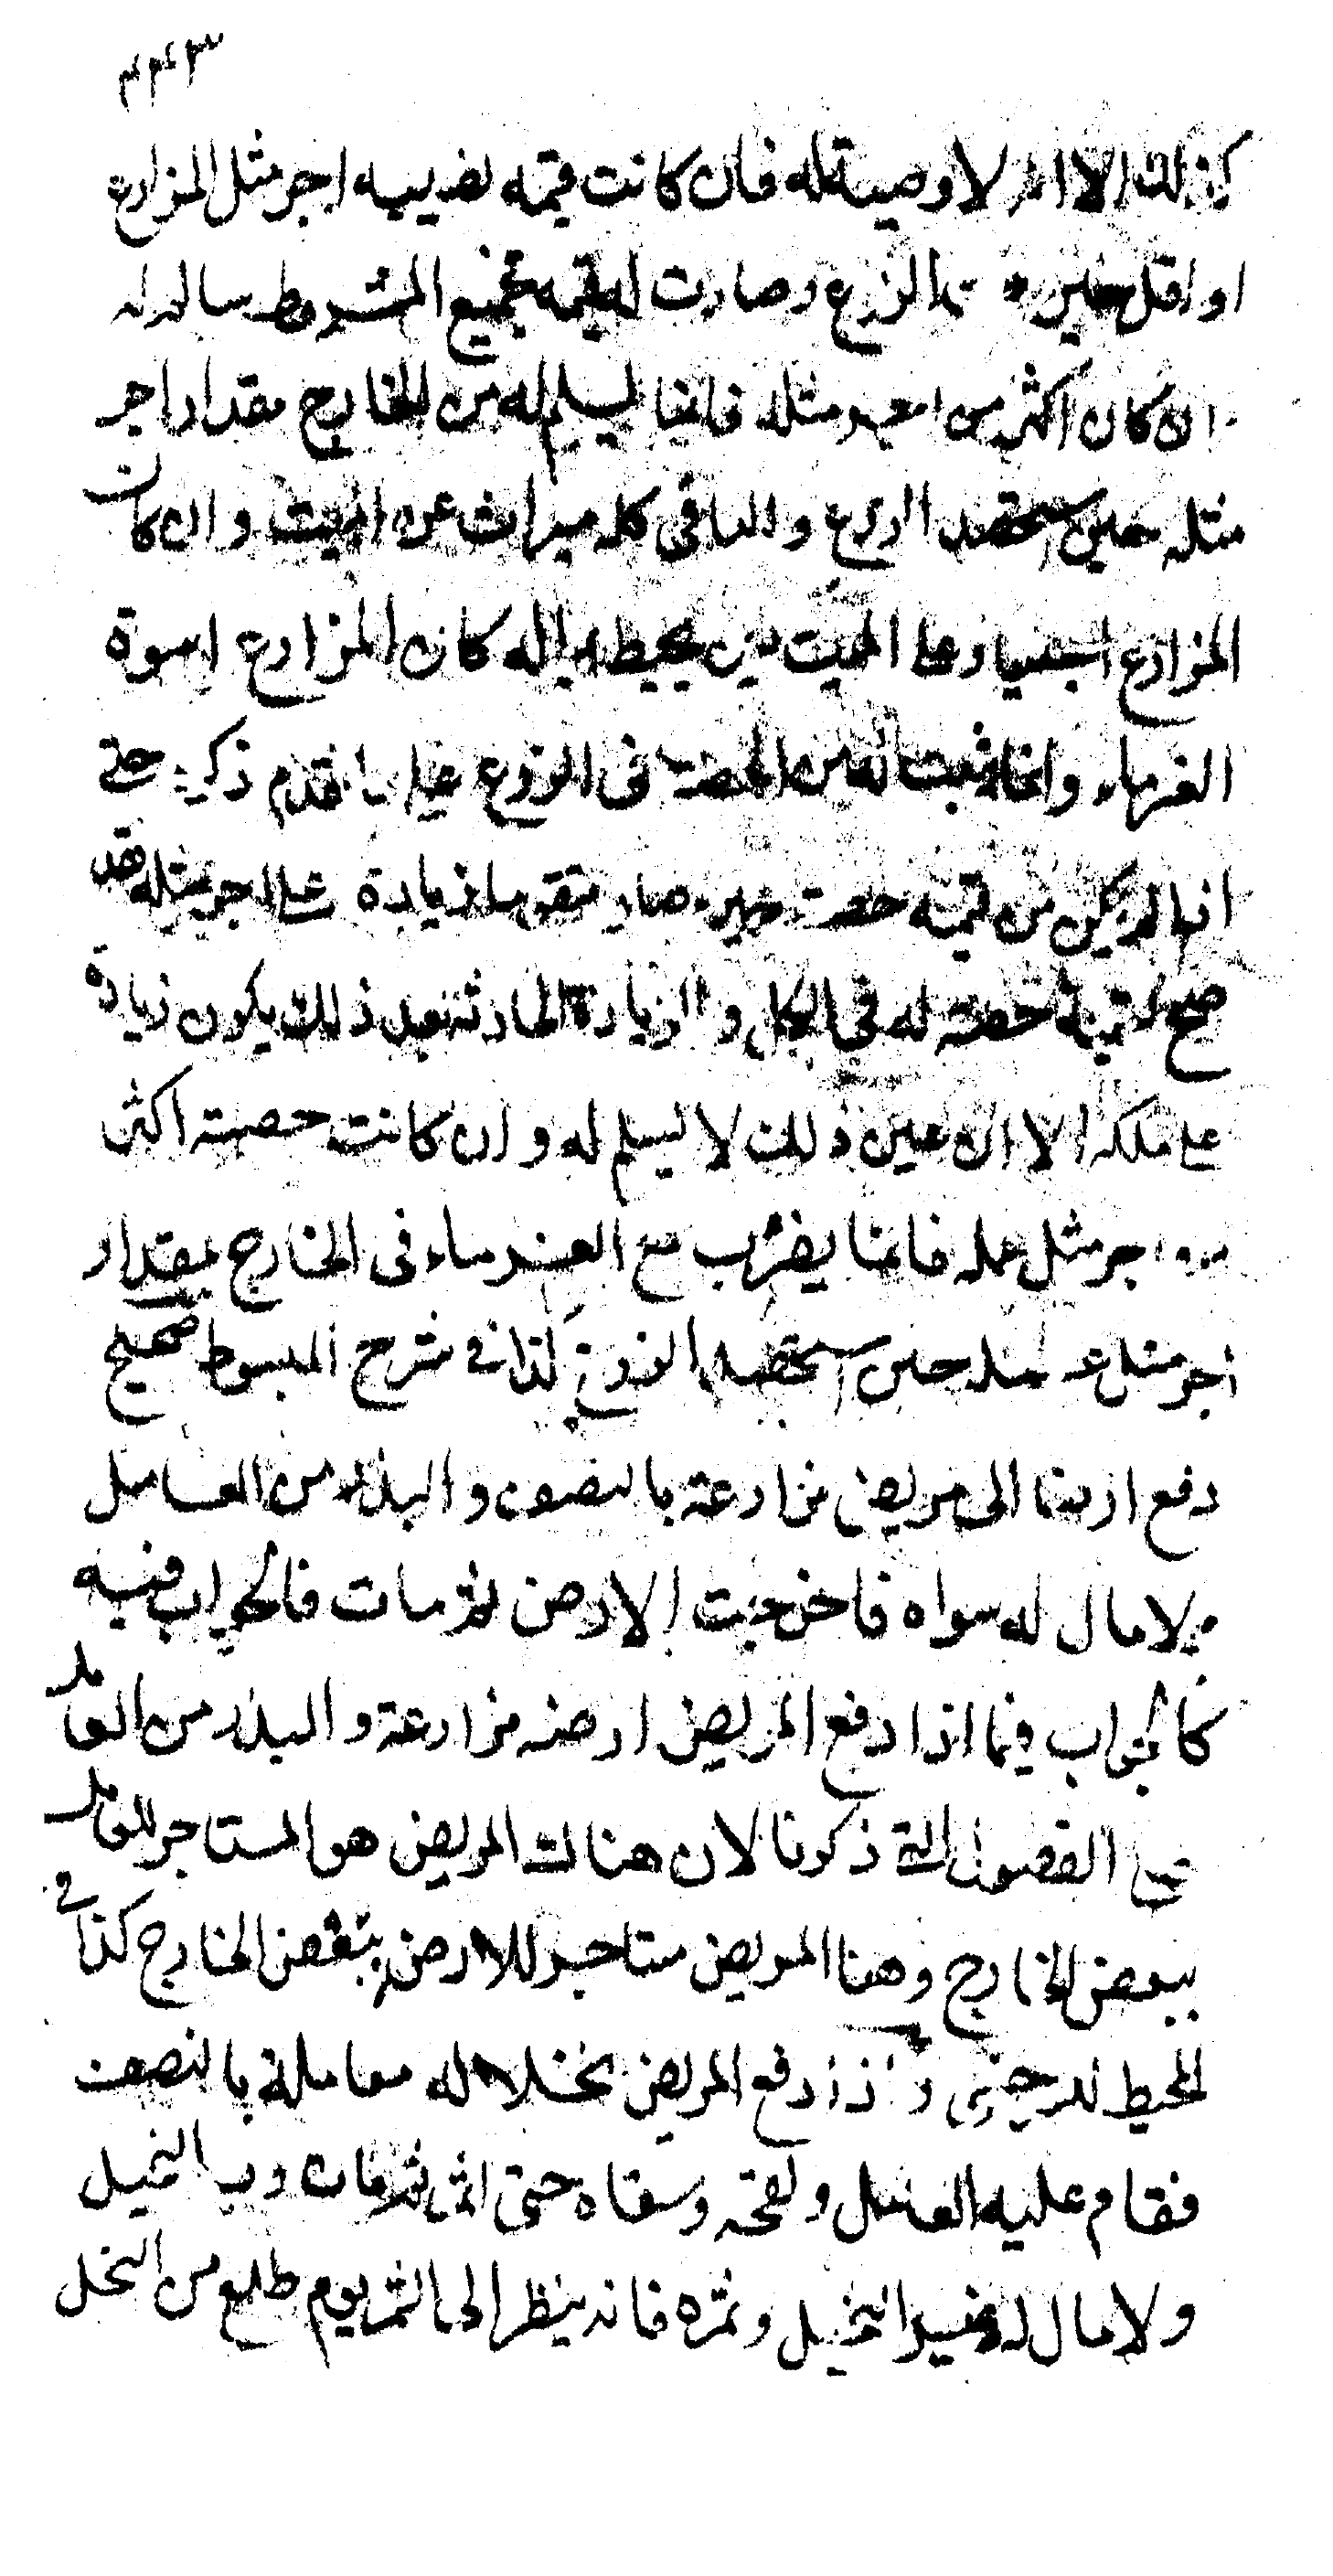 ٤٤٣
كذلك الا انه لا وصية له فان كانت قيمة نصيبه اجر مثل المزارع
او اقل حين الزرع وصارت له قيمة جميع المشروط سالم له
ان كان اكثر من اجر مثله فانما يسلم له من الخارج مقدار اجر
مثله حين يستحصد الزرع والباقي كله ميراث عن الميت وان كان
المزارع اجنبيا وعلى الميت دين يحيط بماله كان المزارع اسوة
الغرماء وانما يثبت له من الحصة في الزرع على ما تقدم ذكره حتى
اذا لم يكن من قيمة حصته حين صار متقوما زيادة على اجر مثله فقد
صح تسمية حصته له في الكل والزيادة الحادثة بعد ذلك يكون زيادة
على ملكه الا ان عين ذلك لا يسلم له وان كانت حصته اكثر
من اجر مثل عمله فانما يضرب مع الغرماء في الخارج بمقدار
اجر مثل عمله حين يستحصد الزرع كذا في شرح المبسوط صحيح
دفع ارضا الى مريض مزارعة بالنصف والبذر من العامل
ولا مال له سواه فاخرجت الارض ثم مات فالجواب فيه
كالجواب فيما اذا دفع المريض ارضه مزارعة والبذر من العامل
في الفصول التي ذكرنا لان هناك المريض هو المستاجر للعامل
ببعض الخارج وهنا المريض مستاجر للارض ببعض الخارج كذا في
المحيط للسرخسي واذا دفع المريض نخلا له معاملة بالنصف
فقام عليه العامل ولقحه وسقاه حتى اثمر ثم مات رب النخيل
ولا مال له غير النخيل وثمره فانه ينظر الى الثمر يوم طلع من النخل